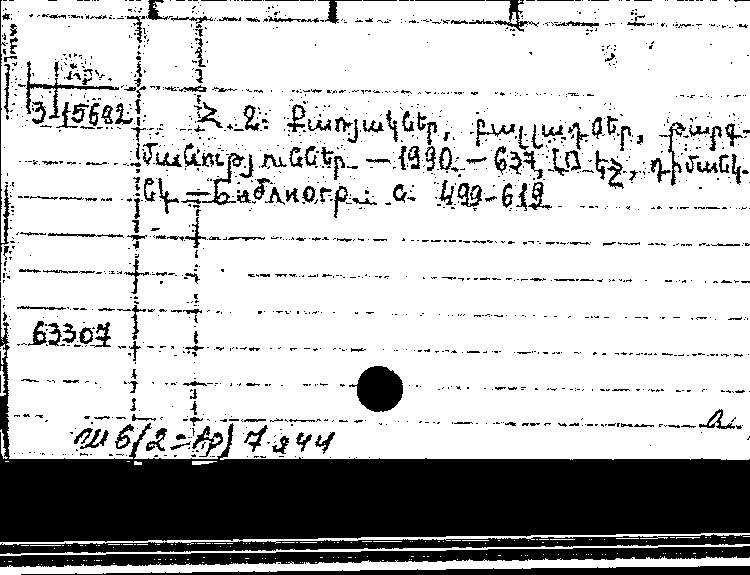 Ар.
3-15682 Հ. 2: Քառյակներ, բալլադներ, թարգ-
մանություններ. – 1990. – 637, [1] էջ, դիմանկ-
նկ. – Библиогр.: с. 499-619
63307
Ш6(2=Ар)7я44